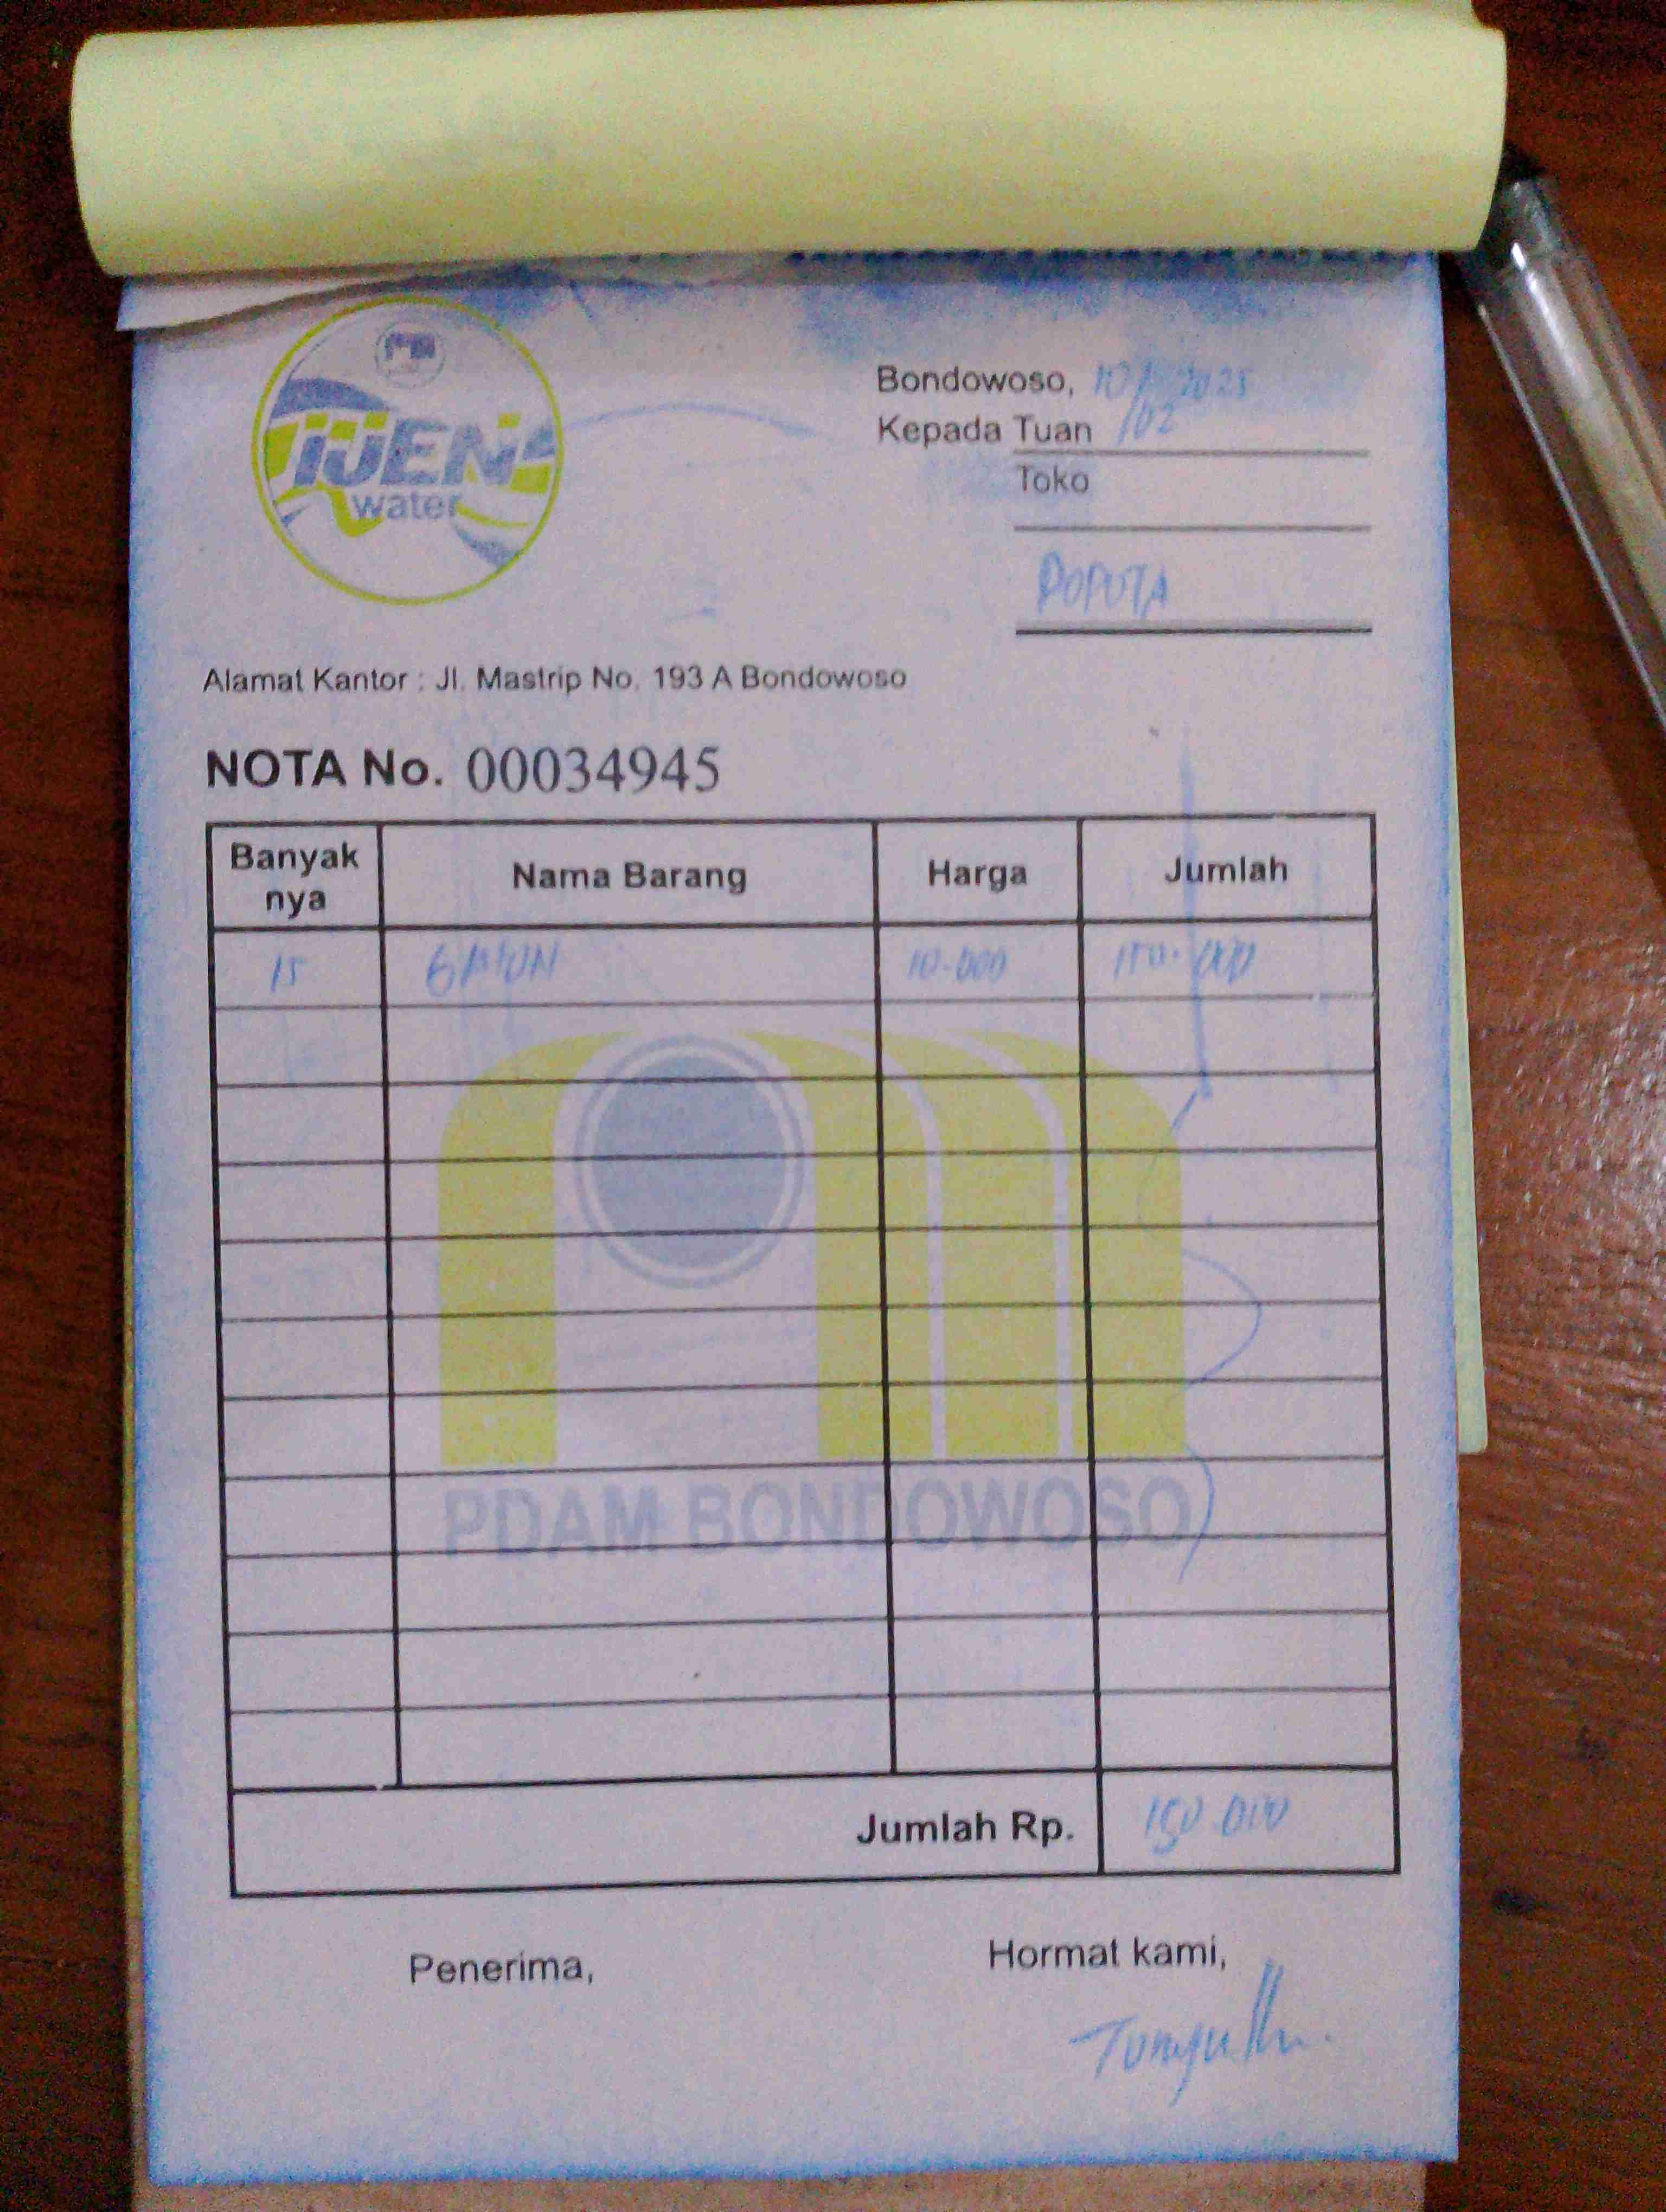 IJEN
water
Bondowoso, 10/02 2025
Kepada Tuan
Toko
POPUTA
Alamat Kantor : Jl. Mastrip No. 193 A Bondowoso
NOTA No. 00034945
Banyak nya Nama Barang Harga Jumlah
15 GALON 10.000 150.000
PDAM BONDOWOSO
Jumlah Rp. 150.000
Penerima, Hormat kami,